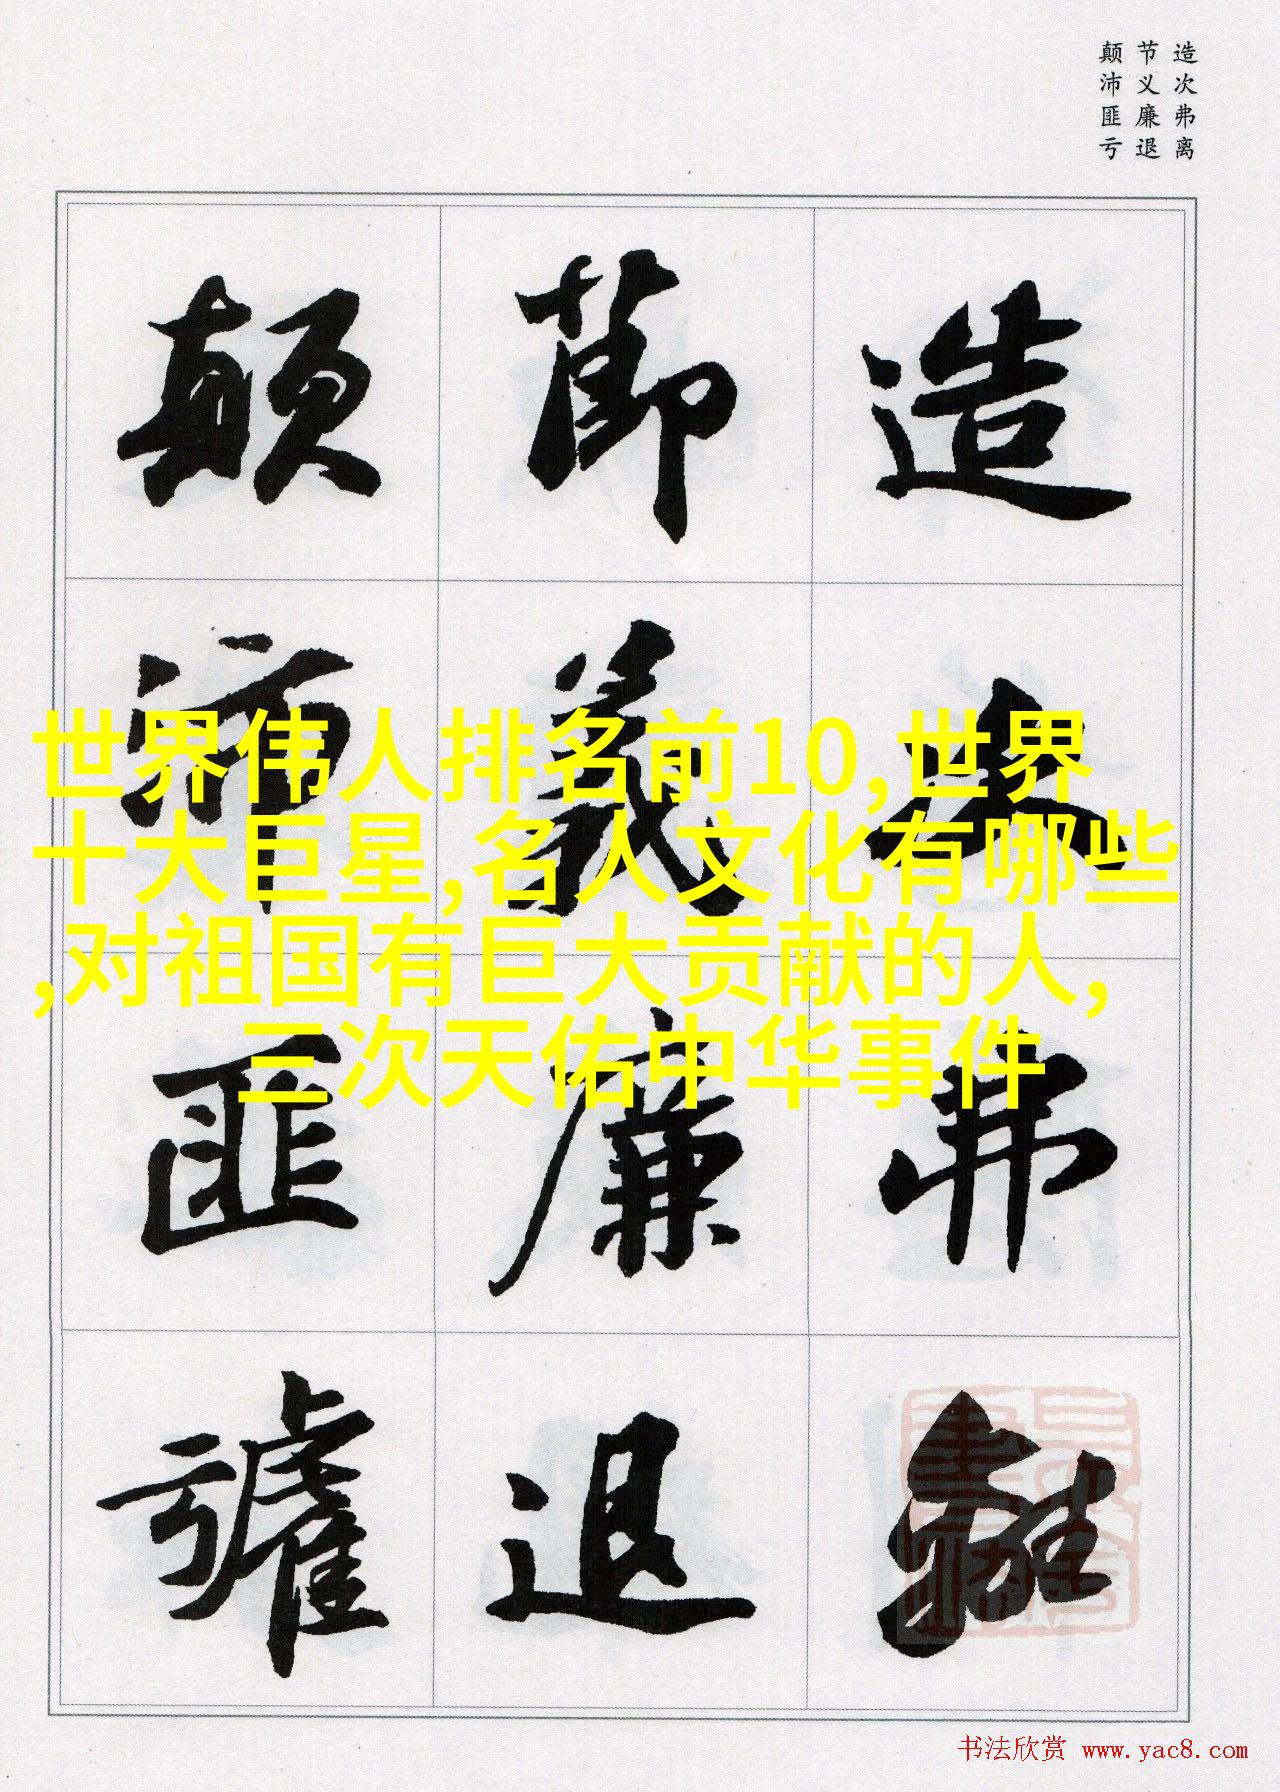 造次弗离
节义廉退
颠沛匪亏
造次弗離
節義廉退
顛沛匪虧
世界伟人排名前10,世界
十大巨星,名人文化有哪些
,对祖国有巨大贡献的人,
三次天佑中华事件
书法欣赏 www.yac8.com